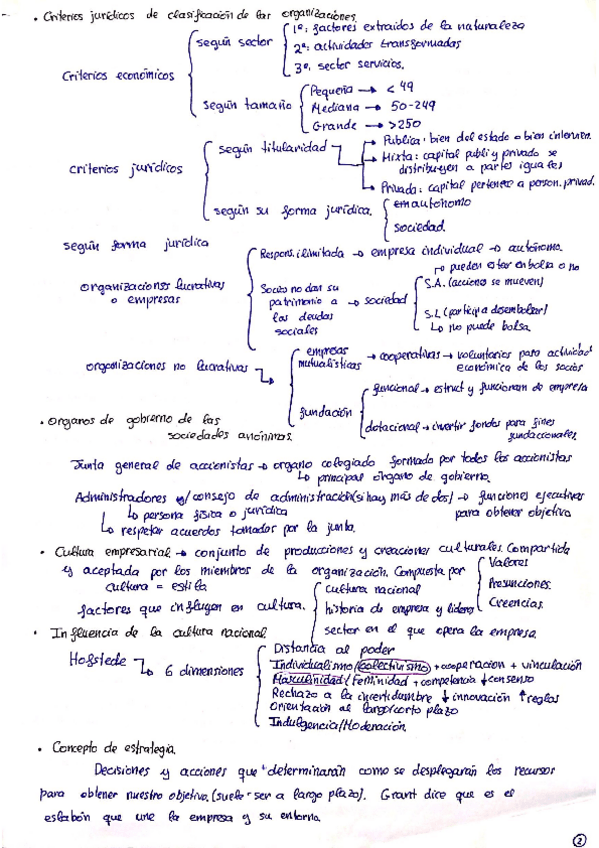 • Criterios jurídicos de clasificación de las organizaciones.
Criterios económicos
según sector
1º: factores extraidos de la naturaleza
2º: actividades transformadas
3º: sector servicios.
según tamaño
Pequeña → < 49
Mediana → 50-249
Grande → >250
criterios jurídicos
según titularidad
Publica: bien del estado o bien intervien.
Mixta: capital publi y privado se
distribuyen a partes iguales
Privada: capital pertenece a person. privad.
según su forma jurídica.
em autónomo
sociedad.
según forma jurídica
organizaciones lucrativas
o empresas
Respons. ilimitada → empresa individual → autónomo.
Socio no dan su
patrimonio a → sociedad
las deudas
sociales
→ pueden estar en bolsa o no
S.A. (acciones se mueven)
S.L (participa desembolzar)
↳ no puede bolsa.
organizaciones no lucrativas
empresas
mutualísticas → cooperativas → voluntarios para actividad
económica de los socios
fundación
funcional → estruct y funcionam de empresa
dotacional → invertir fondos para fines
fundacionales
• Organos de gobierno de las
sociedades anónimas.
Junta general de accionistas → organo colegiado formado por todos los accionistas
↳ principal órgano de gobierno.
Administradores y/consejo de administración (si hay más de dos) → funciones ejecutivas
para obtener objetivo
↳ persona física o jurídica
↳ respetar acuerdos tomados por la junta.
• Cultura empresarial → conjunto de producciones y creaciones culturales. Compartida
y aceptada por los miembros de la organización. Compuesta por
Valores
Presunciones.
Creencias.
cultura = estilo
factores que influyen en cultura.
cultura nacional
historia de empresa y lideres
sector en el que opera la empresa.
• Influencia de la cultura nacional
Hofstede → 6 dimensiones
Distancia al poder
Individualismo/colectivismo + cooperacion + vinculación
Masculinidad/Feminidad + competencia ↓ consenso
Rechazo a la incertidumbre ↓ innovación ↑ reglas
Orientación al largo/corto plazo
Indulgencia/Moderación
• Concepto de estrategia.
Decisiones y acciones que determinarán como se desplegarán los recursos
para obtener nuestro objetivo. (suele ser a largo plazo). Grant dice que es el
eslabón que une la empresa y su entorno.
2